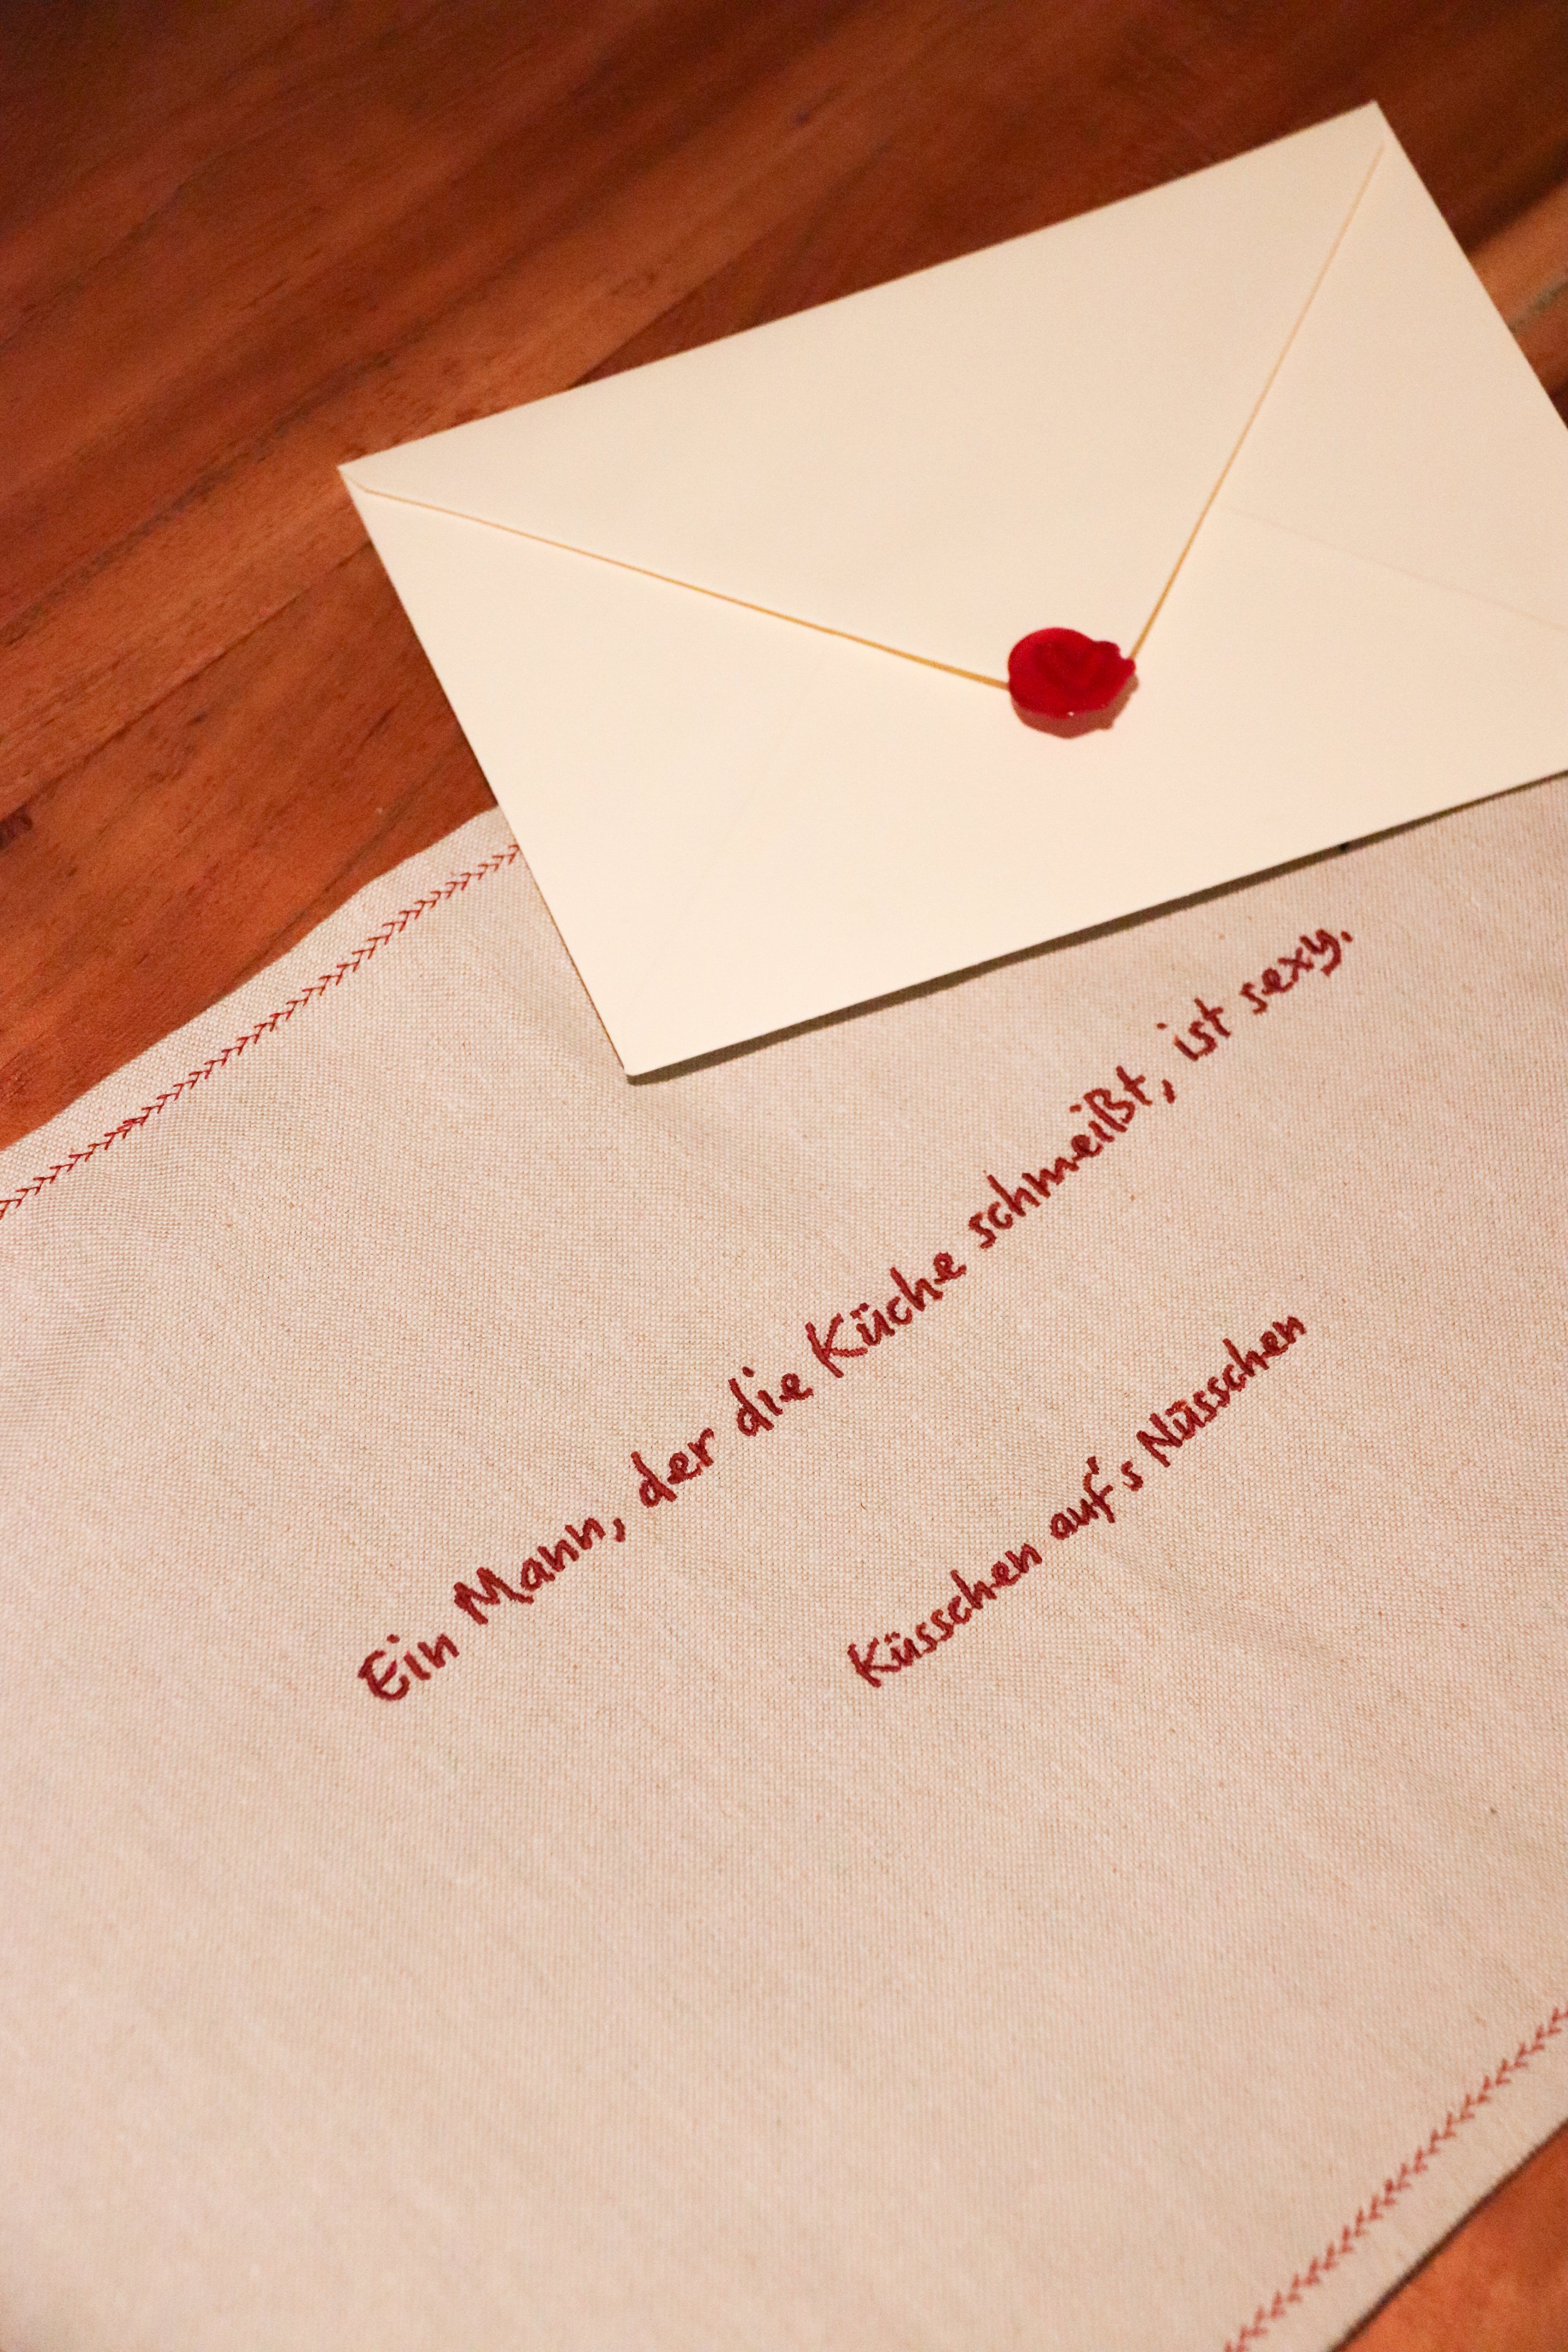 Ein Mann, der die Küche schmeißt, ist sexy.
Küsschen auf's Nüsschen